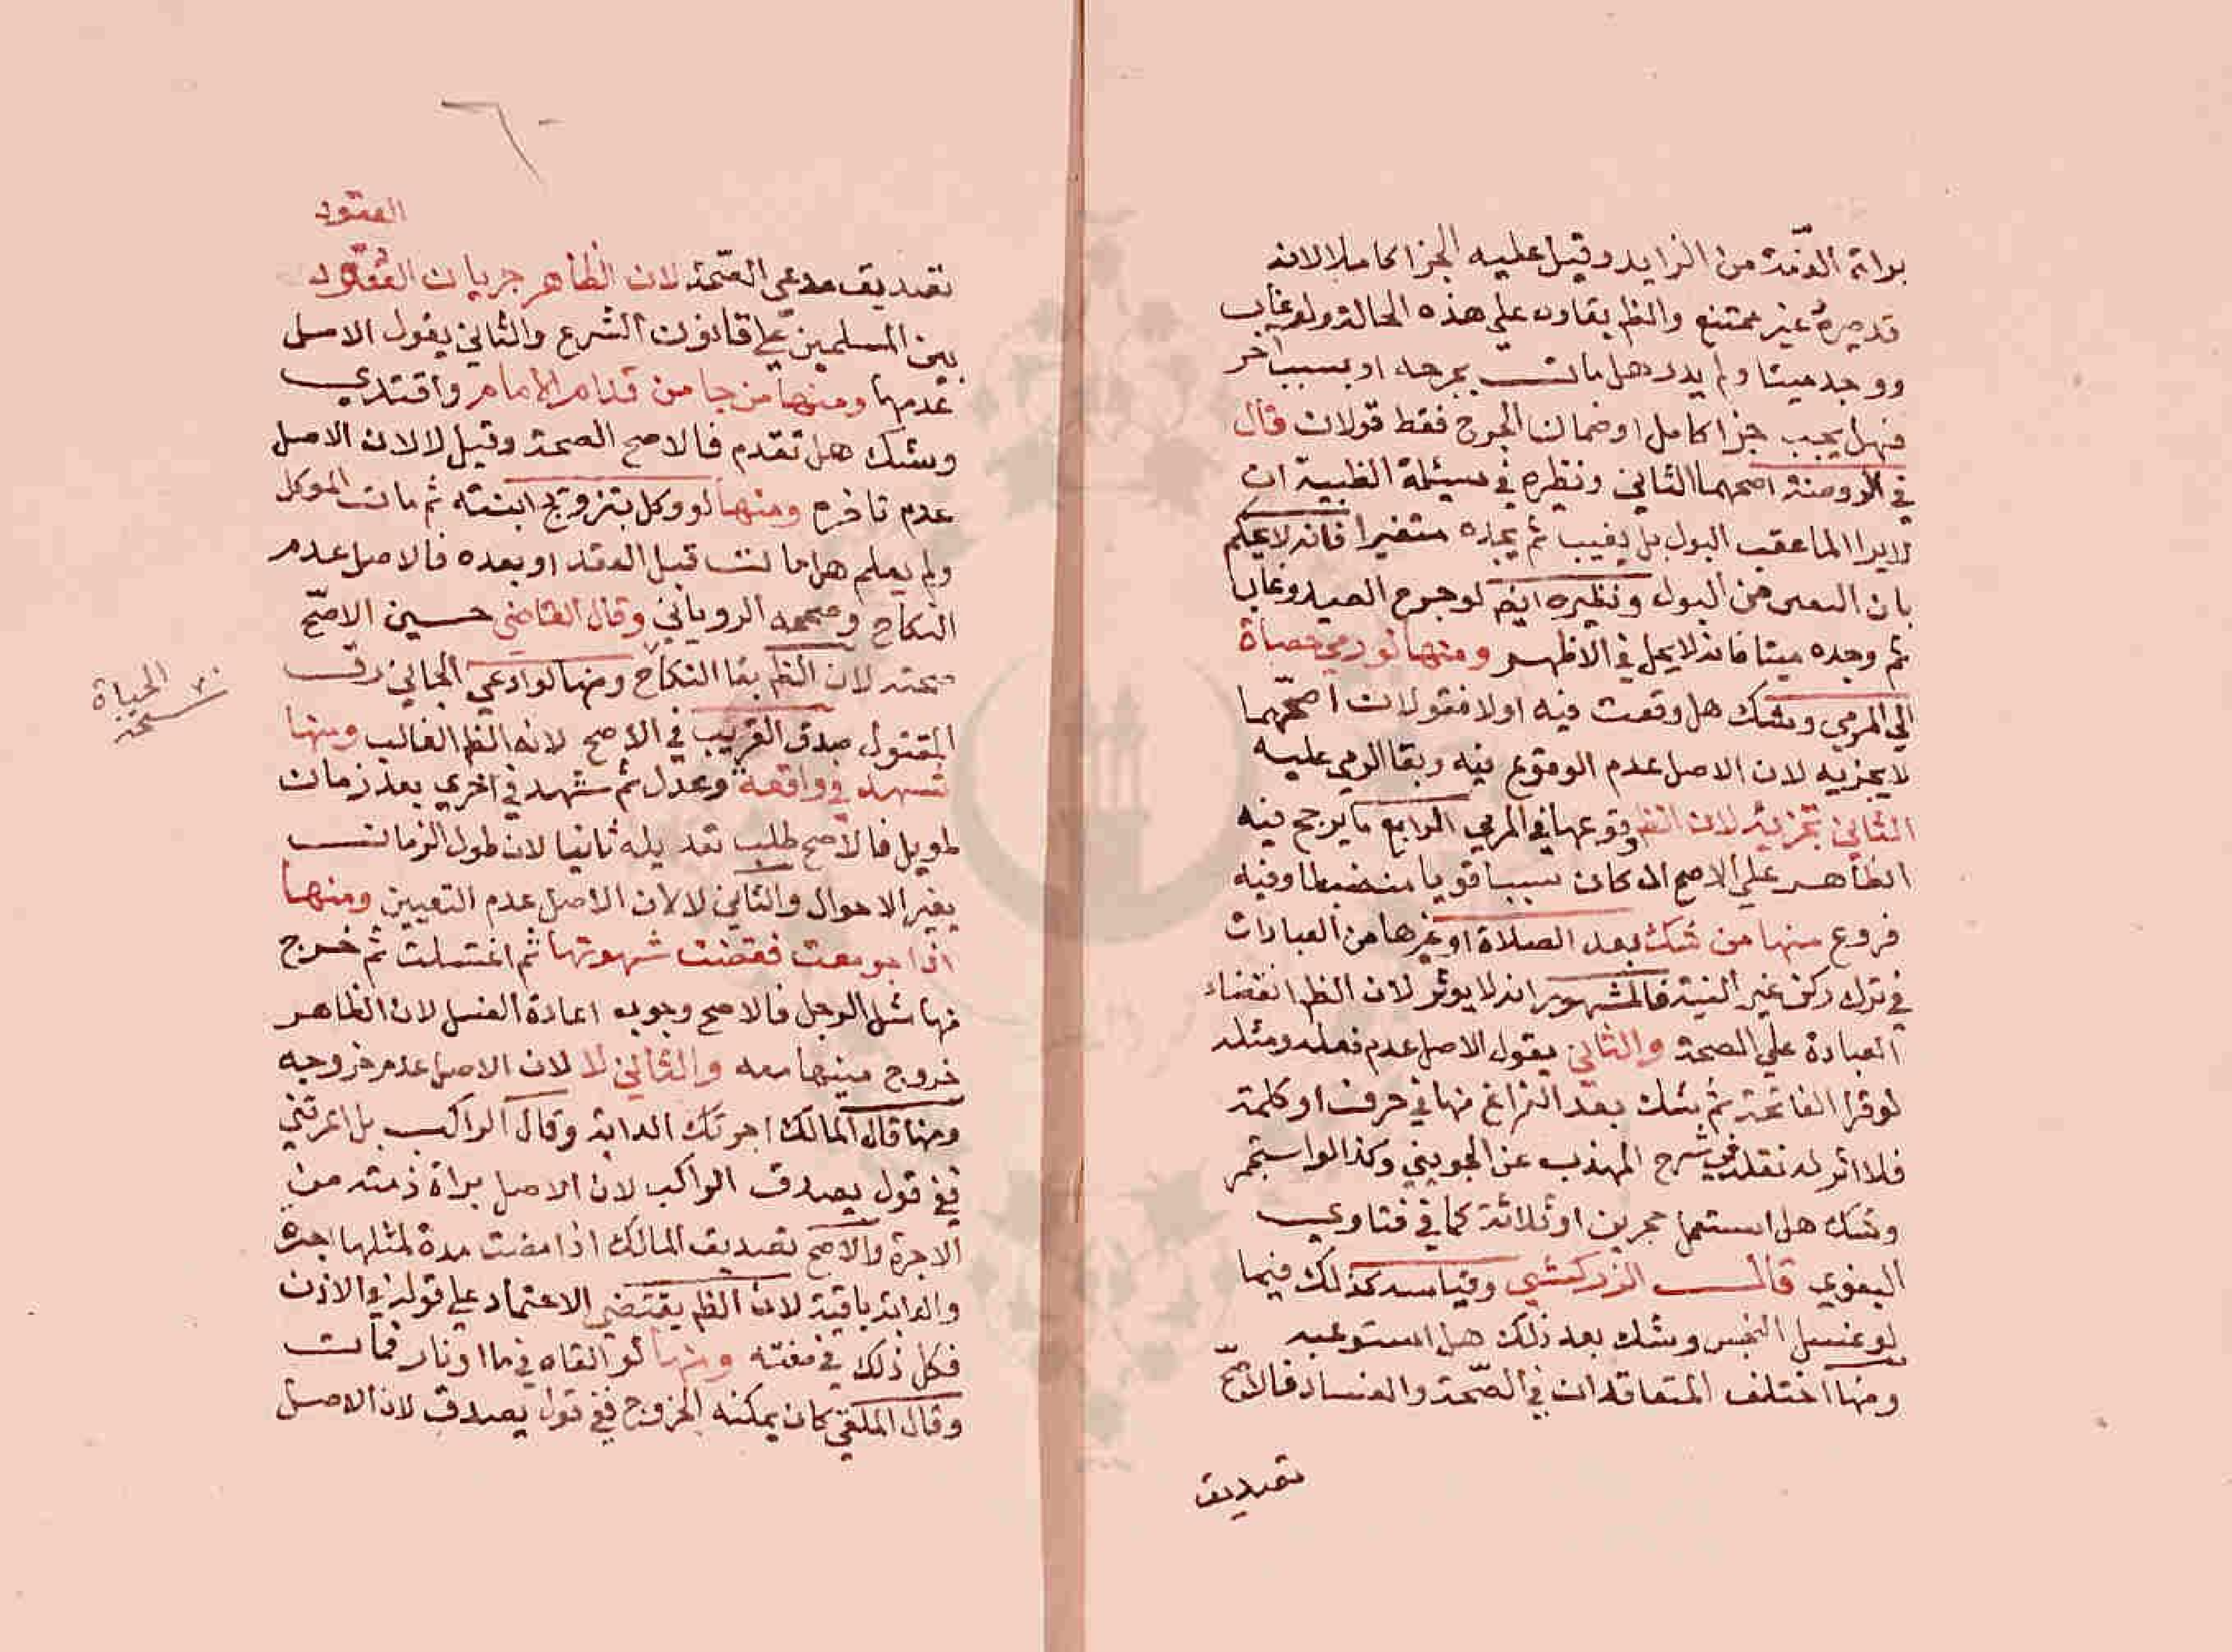 براة الذمة من الزايد وقيل عليه الجزا كاملا لانه
قد صيره غير ممتنع والظ بقاوه علي هذه الحالة ولو غاب
ووجد ميتا ولم يدر هل مات بجرحه او بسبب اخر
فهل يجب جزا كامل او ضمان الجرح فقط قولان قال
في الروضة اصحهما الثاني ونظيره في مسئلة الظبية ان
لا يرا الما عقب البول بل يغيب ثم يجده متغيرا فانه لا يحكم
بان التغير من البول ونظيره ايض لو جرح الصيد وغاب
ثم وجده ميتا فانه لا يحل في الاظهر ومنها لو رمي حصاة
الي المرمي وشك هل وقعت فيه اولا فقولان اصحهما
لا يجزيه لان الاصل عدم الوقوع فيه وبقا الرمي عليه
الثاني تجزئيه لان الظ وقوعها في المرمي الرابع ما يرجح فيه
الظاهر علي الاصح ان كان سببا قويا منضبطا وفيه
فروع منها من شك بعد الصلاة او غيرها من العبادات
في ترك ركن غير النية فالمشهور انه لا يوثر لان الظ انقضاء
العبادة علي الصحة والثاني يقول الاصل عدم فعله ومثله
لو قرا الفاتحة ثم شك بعد الفراغ منها في حرف او كلمة
فلا اثر له نقله في شرح المهذب عن الجويني وكذا لو استجمر
وشك هل استعمل حجرين او ثلاثة كما في فتاوي
البغوي قال الزركشي وقياسه كذلك فيما
لو غسل النجس وشك بعد ذلك هل استوعبه
ومنها اختلف المتعاقدان في الصحة والفساد فالاصح
تصديق
العقود
تصديق مدعي الصحة لان الظاهر جريان العقود
بين المسلمين علي قانون الشرع والثاني يقول الاصل
عدمها ومنها من جا من قدام الامام واقتدي
وشك هل تقدم فالاصح الصحة وقيل لا لان الاصل
عدم تاخره ومنها لو وكل بتزويج ابنته ثم مات الموكل
ولم يعلم هل مات قبل العقد او بعده فالاصل عدم
النكاح وصححه الروياني وقال القاضي حسين الاصح
صحته لان الظ بقا النكاح ومنها لو ادعي الجاني رق
المقتول صدق القريب في الاصح لانه الظ الغالب ومنها
شهد في واقعة وعدل ثم شهد في اخري بعد زمان
طويل فالاصح طلب تعديله ثانيا لان طول الزمان
يغير الاحوال والثاني لا لان الاصل عدم التغيير ومنها
اذا جومعت فقضت شهوتها ثم اغتسلت ثم خرج
منها مني الرجل فالاصح وجوب اعادة الغسل لان الظاهر
خروج منيها معه والثاني لا لان الاصل عدم خروجه
ومنها قال المالك اجرتك الدابة وقال الراكب بل اعرتني
ففي قول يصدق الراكب لان الاصل براة ذمته من
الاجرة والاصح تصديق المالك اذا مضت مدة لمثلها اجرة
والدابة باقية لان الظ يقتضي الاعتماد علي قوله في الاذن
فكل ذلك في صفته ومنها لو القاه في ما او نار فمات
وقال الملقي كان يمكنه الخروج ففي قول يصدق لان الاصل
الحياة
نسخة